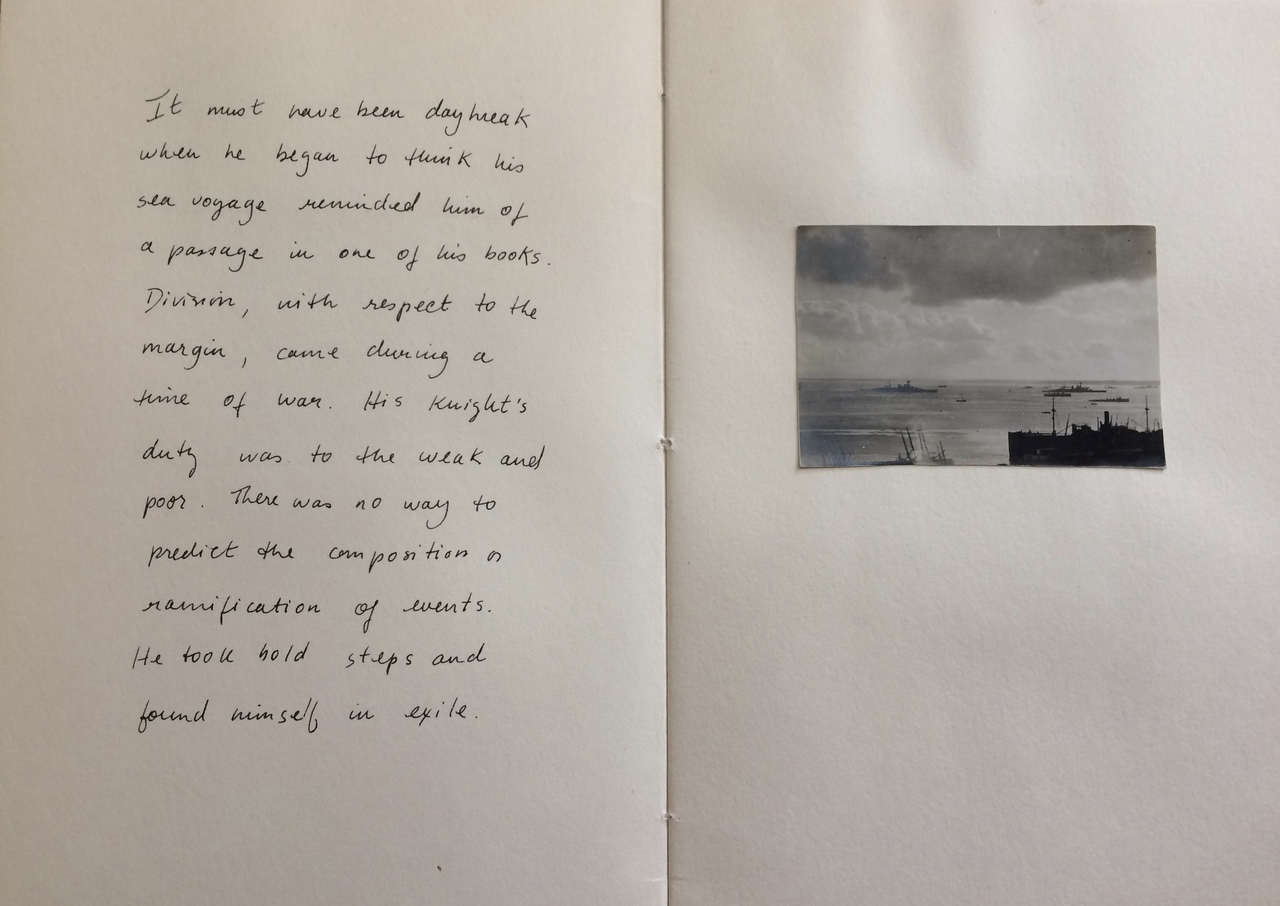 It must have been daybreak
when he began to think his
sea voyage reminded him of
a passage in one of his books.
Division, with respect to the
margin, came during a
time of war. His Knight's
duty was to the weak and
poor. There was no way to
predict the composition or
ramification of events.
He took bold steps and
found himself in exile.